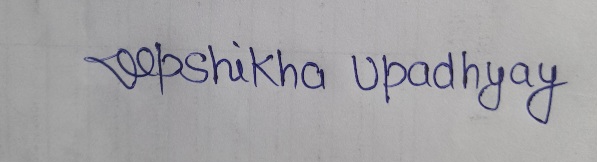 Deepshikha Upadhyay